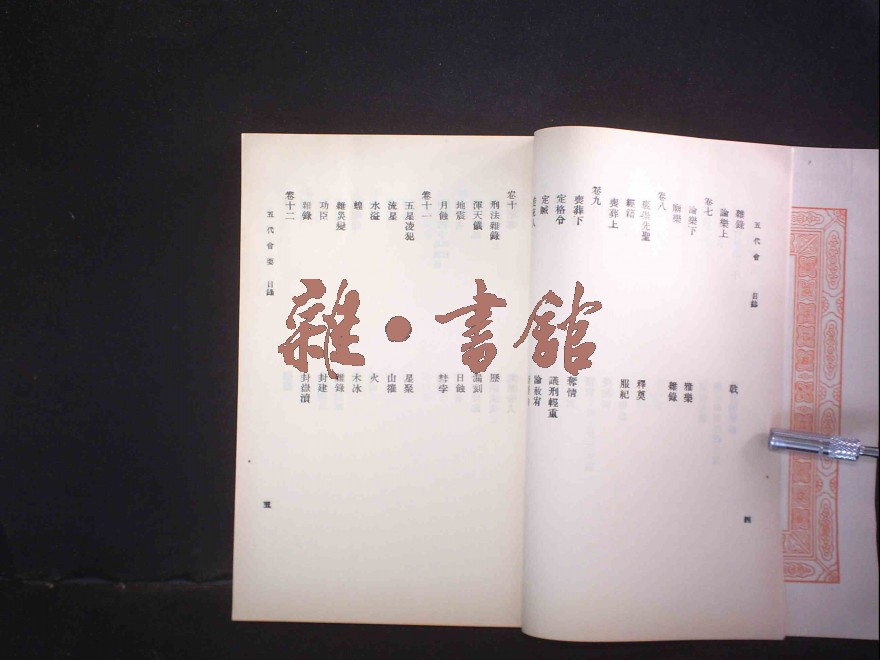 五代會 目錄
雜錄
論樂上 載
卷七
論樂下 雅樂
廟樂 雜錄
卷八
褒崇先聖 釋奠
經籍 服紀
喪葬上
卷九
喪葬下 奪情
定格令 議刑輕重
定贓 論赦宥
四
卷十
刑法雜錄 歷
渾天儀 漏刻
地震 日蝕
月蝕 彗孛
卷十一
五星凌犯 星聚
流星 山摧
水溢 火
蝗 木冰
雜災變 雜錄
功臣 封建
雜錄 封嶽瀆
卷十二
五代會要 目錄
五
雜·書館